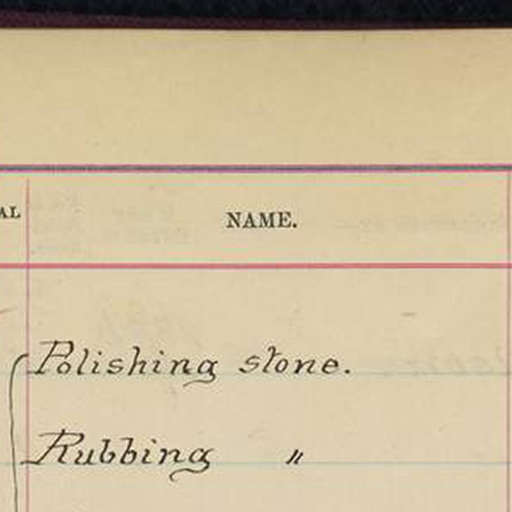 AL
NAME.
Polishing stone.
Rubbing "